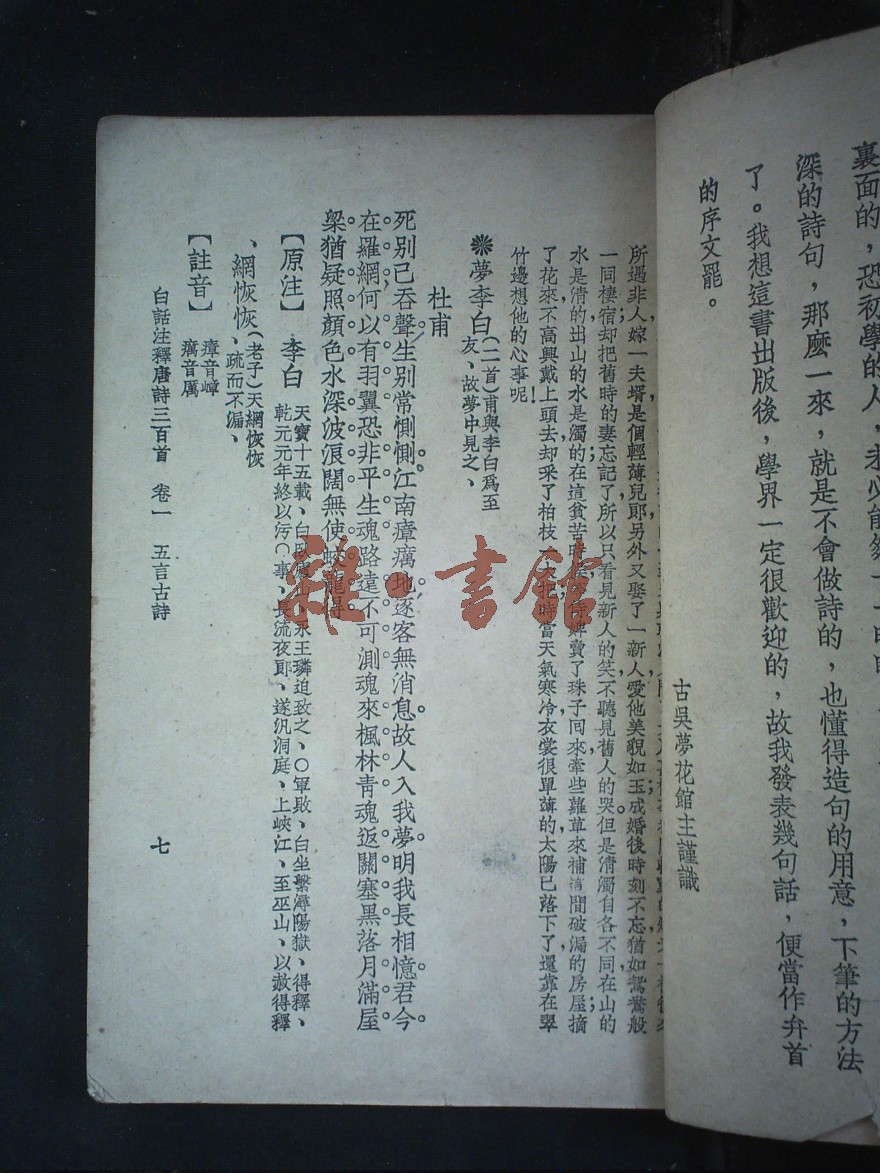 裏面的，恐初學的人，未必能夠一一明
深的詩句，那麽一來，就是不會做詩的，也懂得造句的用意，下筆的方法
了。我想這書出版後，學界一定很歡迎的，故我發表幾句話，便當作弁首
的序文罷。
古吳夢花館主謹識
所遇非人嫁一夫壻是個輕薄兒郎另外又娶了一新人愛他美貌如玉成婚後時刻不忘猶如鴛鴦般
一同棲宿却把舊時的妻忘記了所以只看見新人的笑不聽見舊人的哭但是淸濁自各不同在山的
水是淸的出山的水是濁的在這貧苦時侍婢賣了珠子回來牽些蘿草來補這間破漏的房屋摘
了花來不高興戴上頭去却采了柏枝一大把時當天氣寒冷衣裳很單薄的太陽已落下了還靠在翠
竹邊想他的心事呢！
❋夢李白（二首）甫與李白爲至
友、故夢中見之、
杜甫
死別已吞聲生別常惻惻江南瘴癘地逐客無消息故人入我夢明我長相憶君今
在羅網何以有羽翼恐非平生魂路遠不可測魂來楓林靑魂返關塞黑落月滿屋
梁猶疑照顏色水深波浪闊無使蛟龍得
【原注】 李白 天寶十五載、白臥廬山、永王璘迫致之、○軍敗、白坐繫潯陽獄、得釋、
乾元元年終以汚○事、長流夜郎、遂汎洞庭、上峽江、至巫山、以赦得釋
、網恢恢、（老子）天網恢恢
、疏而不漏、
【註音】 瘴音嶂
癘音厲
白話注釋唐詩三百首 卷一 五言古詩 七
雜·書館